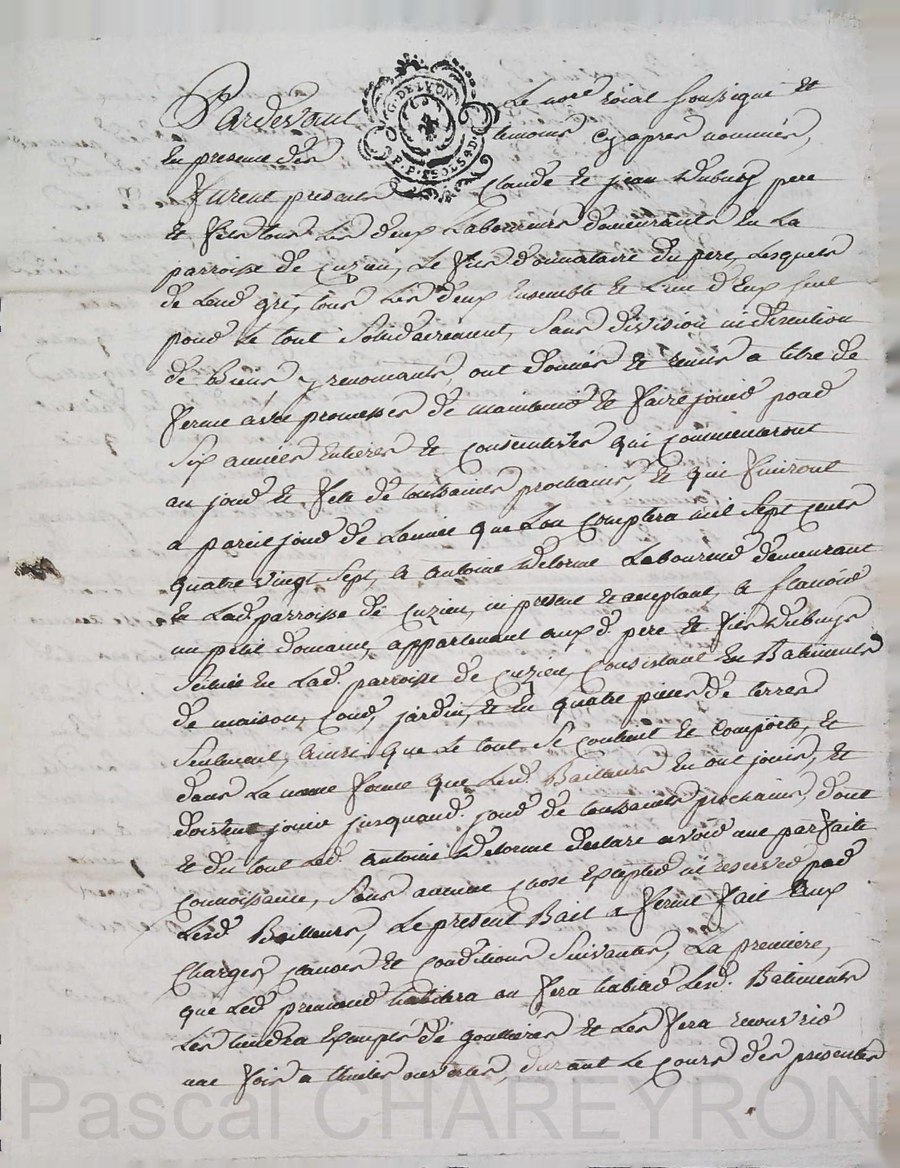 G. DE LYON
P.P. 5 SOLS 4 D.
Pardevant Le nore. roial soussigné et
En presence des temoins cy apres nommés,
Furent presents Claude et jean Dubuy pere
et fils tous Les deux Laboureurs demeurants en La
parroisse de Cuzieu, Le fils donnataire du pere, Lesquels
de Leur gré, tous Les deux Ensemble et L'un d'Eux seul
pour Le tout solidairement, sans division ni discution
de Biens y renonçants, ont donnés et remis a titre de
ferme avec promesses de maintenir et faire jouir pour
six années entieres et consecutives qui commenceront
au jour et fete de toussaints prochains, et qui finiront
a pareil jour de L'année que L'on comptera mil sept cents
quatre vingt sept, a antoine Delorme Laboureur demeurant
en Lad. parroisse de Cuzieu, ici present et acceptant, a sçavoir
un petit domaine, appartenant auxd. pere et fils Dubuy
scitué en Lad. parroisse de Cuzieu, Consistant en Batiments
de maison, Cour, jardin, et en quatre pieces de terres
seulment, Ainsi que Le tout se contient et comporte, et
dans La meme forme que Lesd. Bailleurs En ont jouis, et
doivent jouir jusquaud. jour de toussaints prochains, dont
et du tout Led. Antoine Delorme declare avoir une parfaite
connoissance, sans aucune chose excepter ni reserver par
Lesd. Bailleurs, Le present Bail a ferme fait aux
Charges, clauses et conditions suivantes, La premiere,
que Led. preneur habitera ou fera habiter Lesd. Batiments
Les tiendra exempts de gouttieres et Les fera recouvrir
une fois a thuiles ouvertes, durant Le cours des presentes
Pascal CHAREYRON